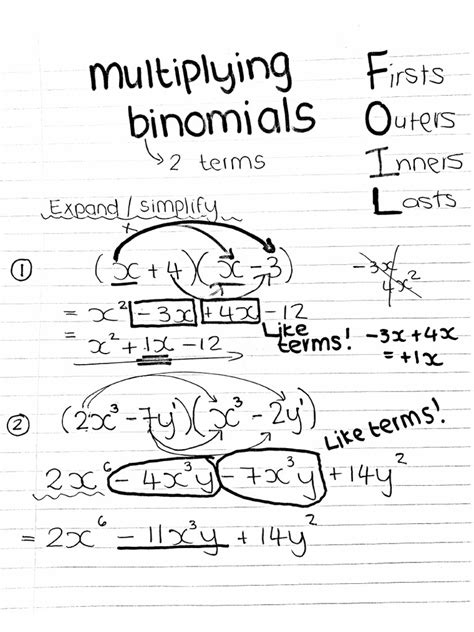 multiplying
binomials
↳ 2 terms
Firsts
Outers
Inners
Lasts
Expand / simplify
① (x + 4)(x - 3)
= x² - 3x + 4x - 12
Like terms!
= x² + 1x - 12
-3x
4x²
-3x + 4x
= +1x
② (2x³ - 7y¹)(x³ - 2y¹)
Like terms!
2x⁶ - 4x³y - 7x³y + 14y²
= 2x⁶ - 11x³y + 14y²